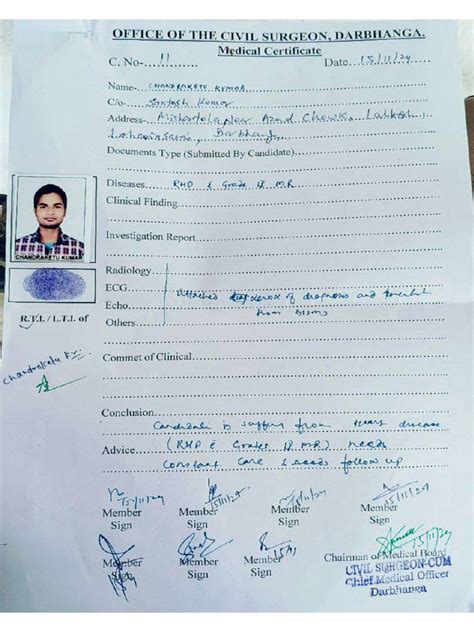 OFFICE OF THE CIVIL SURGEON, DARBHANGA.
Medical Certificate
C. No- 11 Date 15/11/24
Name- CHANDRAKETU KUMAR
C/o- Santosh Kumar
Address- Near Azad Chowk,
Darbhanga
Documents Type (Submitted By Candidate)
Diseases RHD
Clinical Finding
Investigation Report
CHANDRAKETU KUMAR
Radiology
ECG
attached xerox of diagnosis and
Echo
from
Others
R.T.I. / L.T.I. of
Commet of Clinical
Conclusion
Candidate is suffering from Heart disease
Advice (RHD MR) needs
constant care & needs follow up
15/11/24 15/11/24 15/11/24 15/11/24
Member Member Member Member
Sign Sign Sign Sign
15/11 15/11/24
Member Member Member Chairman of Medical Board
Sign Sign Sign
CIVIL SURGEON-CUM
Chief Medical Officer
Darbhanga